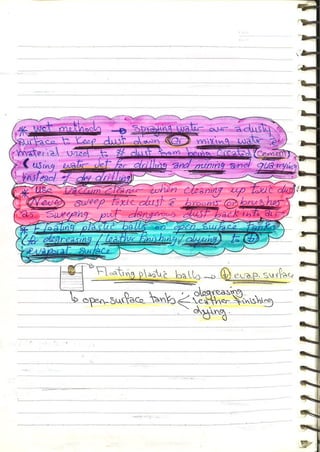 * wet methods → Spraying water over a dusty
surface to keep dust down or mixing water &
material used to # dust from being created
(using water jet for drilling and mining and quarrying
instead of dry drilling)
* Use vaccum cleaner when cleaning up toxic dust
Never sweep toxic dust & brooms or brushes
as sweeping put dangerous dust back into air
* Floating plastic balls on open surface tanks
degreasing / leather finishing / dying to ↓
evaporat surface
Floating plastic balls → ↓ evap. surface
open-surface tanks < degreasing
leather finishing
dying.